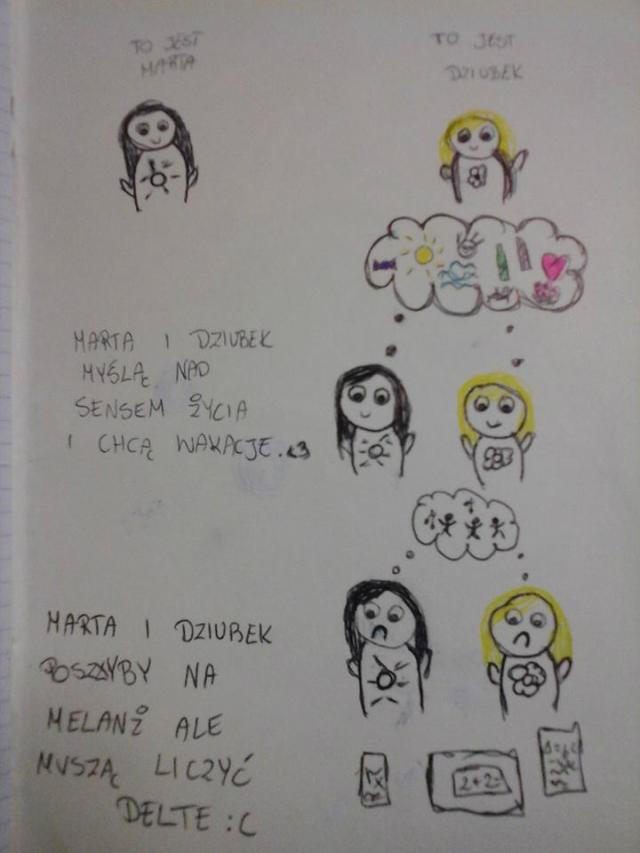 TO JEST
MARTA
TO JEST
DZIUBEK
MARTA I DZIUBEK
MYŚLĄ NAD
SENSEM ŻYCIA
I CHCĄ WAKACJE. <3
MARTA I DZIUBEK
POSZŁYBY NA
MELANŻ ALE
MUSZĄ LICZYĆ
DELTE :C
2+2=